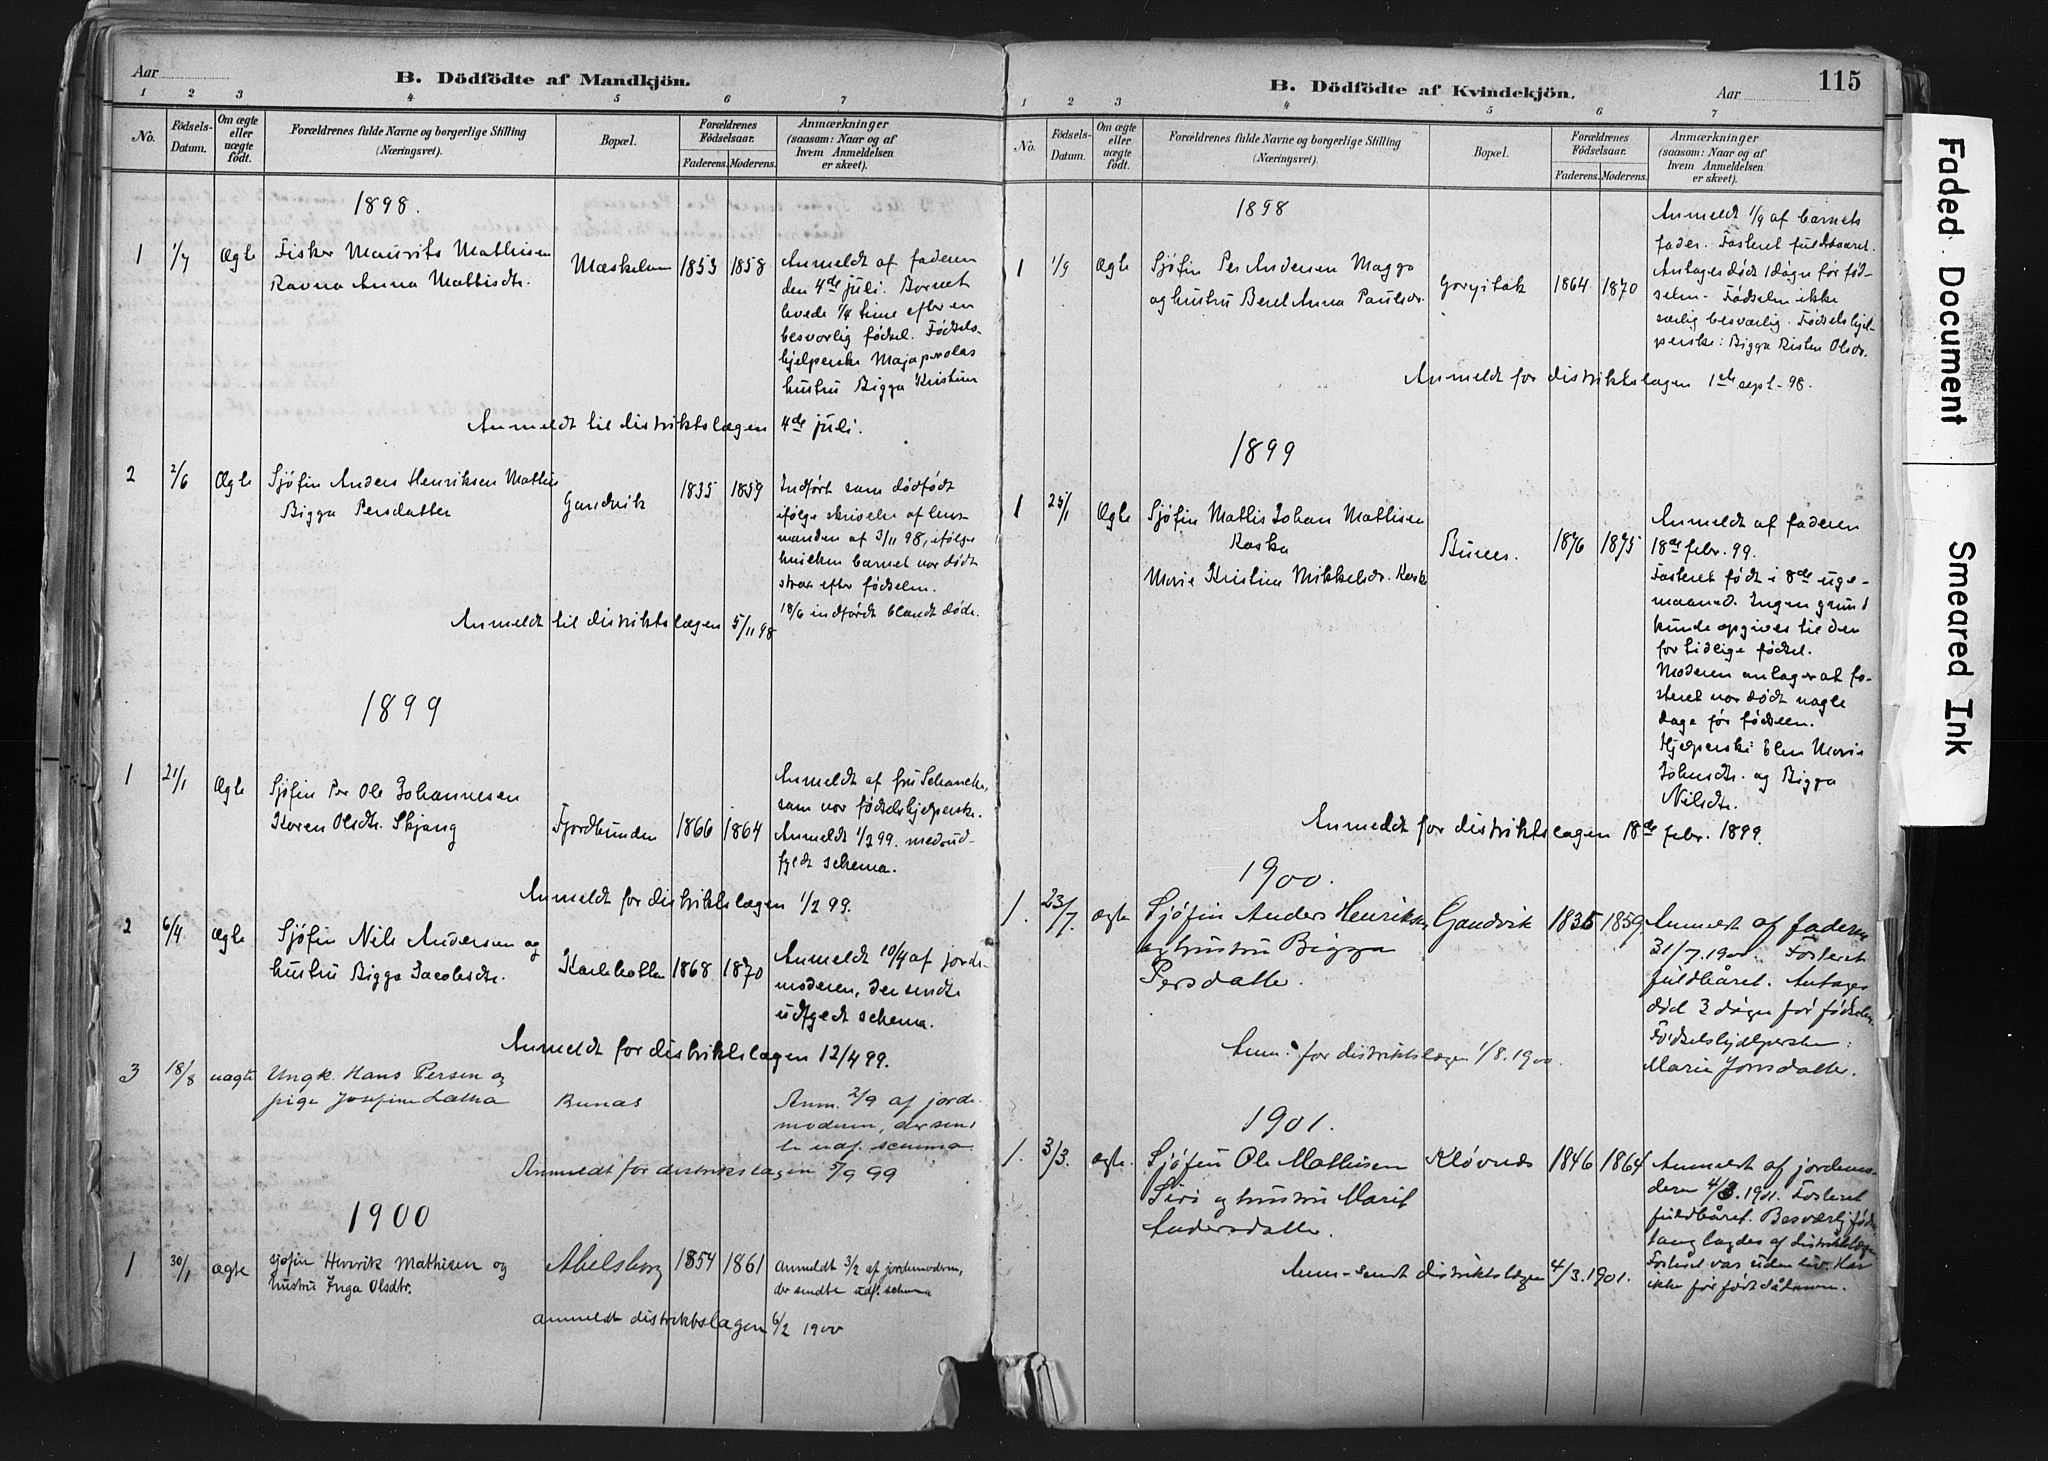 Aar
B. Dödfödte af Mandkjön.
1 2 3 4 5 6 7
No.
Födsels-
Datum.
Om ægte
eller
uægte
födt.
Forældrenes fulde Navne og borgerlige Stilling
(Næringsvei).
Bopæl.
Forældrenes
Födselsaar.
Faderens. Moderens.
Anmærkninger
(saasom: Naar og af
hvem Anmeldelsen
er skeet).
1898.
1 1/7 Ægte Fisker Maurits Mathisen
Ravna Anna Mathisdtr.
Mæskelum 1853 1858
Anmeldt af faderen
den 4de juli. Barnet
levede 1/4 time efter en
besværlig fødsel. Fødsels-
hjelperske Majaperolas
hustru Bigga Kristina
Anmeldt til distriktslægen 4de juli.
2 2/6 Ægte Sjøfin Anders Henriksen Mathis
Bigga Persdatter
Gandvik 1835 1859
Indført som dødfødt
ifølge skrivelse af lens-
manden af 3/11 98, ifølge
hvilken barnet var dødt
strax efter fødselen.
18/6 indførdt blandt døde.
Anmeldt til distriktslægen 5/11 98
1899
1 21/1 Ægte Sjøfin Per Ole Johannesen
Karen Olsdtr. Skjang
Fjordbunden 1866 1864
Anmeldt af fru Schanche,
som var fødselshjelperske.
Anmeldt 1/2 99. med ud-
fyldt schema.
Anmeldt for distriktslægen 1/2 99.
2 6/4 ægte Sjøfin Nils Andersen og
hustru Bigga Jacobsdtr.
Karlebotten 1868 1870
Anmeldt 10/4 af jord-
moderen, der sendte
udfyldt schema.
Anmeldt for distriktslægen 12/4 99.
3 18/8 uægte Ungk. Hans Persen og
pige Josefine
Bunæs
Anm. 2/9 af jorde-
moderen, der send
te udf. schema
Anmeldt for distriktslægen 5/9 99
1900
1 30/1 ægte sjøfin Henrik Mathisen og
hustru Inga Olsdtr.
Abelsborg 1854 1861
anmeldt 3/2 af jordemoderen,
der sendte udf. schema
anmeldt distriktslægen 6/2 1900
B. Dödfödte af Kvindekjön.
Aar
115
1 2 3 4 5 6 7
No.
Födsels-
Datum.
Om ægte
eller
uægte
födt.
Forældrenes fulde Navne og borgerlige Stilling
(Næringsvei).
Bopæl.
Forældrenes
Födselsaar.
Faderens. Moderens.
Anmærkninger
(saasom: Naar og af
hvem Anmeldelsen
er skeet).
1898
1 1/9 Ægte Sjøfin Per Andersen Magga
og hustru Beret Anna Paulsdr.
1864 1870
Anmeldt 1/9 af barnets
fader. Fosteret fuldbaaret.
Antages dødt 1 døgn før fød-
selen. Fødselen ikke
særlig besværlig. Fødselshjel-
perske: Bigga Risten Olsdr.
Anmeldt for distriktslægen 1ste sept. 98.
1899
1 25/1 Ægte Sjøfin Mathis Johan Mathisen
Kaska
Marie Kristine Mikkelsdr. Kask
Bunes. 1876 1875
Anmeldt af faderen
18de febr. 99.
Fosteret født i 8de uge-
maaned. Ingen grund
kunde opgives til den
for tidlige fødsel.
Moderen antager at fo-
steret var dødt nogle
dage før fødselen.
Hjelperske: Elen Marie
Johnsdtr. og Bigga
Nilsdtr.
Anmeldt for distriktslægen 18de febr. 1899.
1900.
1. 23/7. ægte Sjøfin Anders Henriksen
og hustru Bigga
Persdatter.
Gandvik 1835 1859
Anmeldt af faderen
31/7. 1900. Fosteret
fuldbåret. Antages
død 2 døgn før fødselen.
Fødselshjelperske:
Marie Jonsdatter.
Anm. for distriktslægen 1/8. 1900.
1901.
1. 3/3. ægte. Sjøfin Ole Mathisen
Siri og hustru Marit
Andersdatter.
Kløvnes 1846 1864
Anmeldt af jordemo-
deren 4/3. 1901. Fosteret
fuldbåret. Besværlig fød.
tang lagdes af distriktslægen
Fosteret var uden liv. Har
ikke før født
Anm. sendt distriktslægen 4/3. 1901.
Faded Document
Smeared Ink